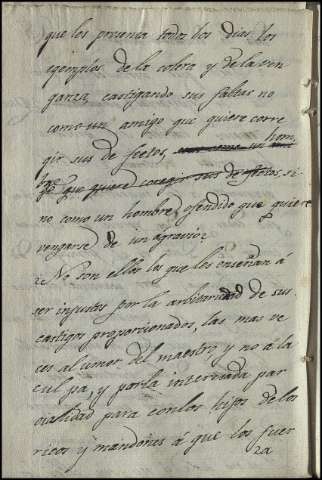 que les presenta todos los dias los
egemplos de la colera y de la ven
ganza, castigando sus faltas no
como un amigo que quiere corre
gir sus defectos, como un hom
bre que quiere coregir sus defectos, si
no como un hombre ofendido que quiere
vengarse de un agravio?
¿No son ellos los que los enseñan á
ser injustos por la arbitrariedad de sus
castigos proporcionados, las mas ve
ces al umor del maestro y no á la
culpa, y por la interesada par
cialidad para con los hijos de los
ricos y mandones á que los fuer
za